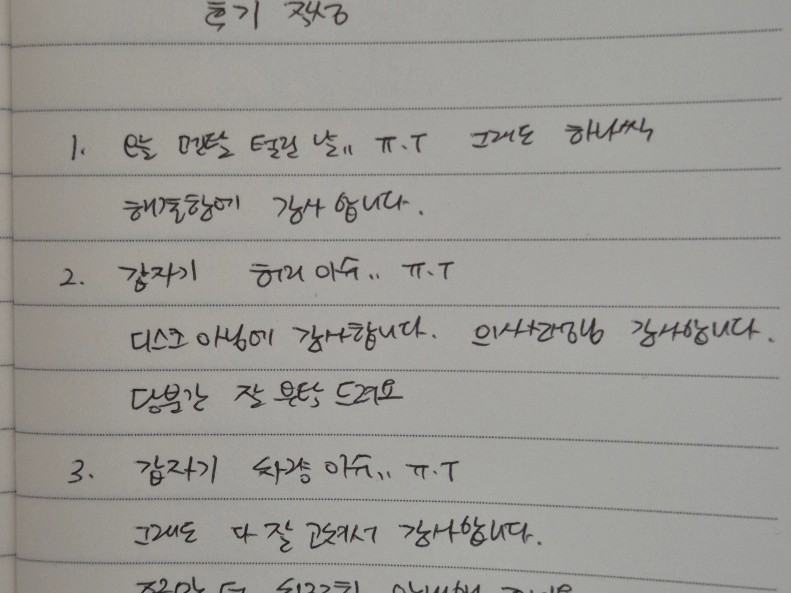 후기 작성
1. 오늘 멘탈 털린 날.. ㅠ.ㅜ 그래도 하나씩
해결함에 감사합니다.
2. 갑자기 허리 이슈.. ㅠ.ㅜ
디스크 아님에 감사합니다. 의사선생님 감사합니다.
당분간 잘 부탁 드려요
3. 갑자기 차량 이슈.. ㅠ.ㅜ
그래도 다 잘 고쳐서 감사합니다.
조금만 더